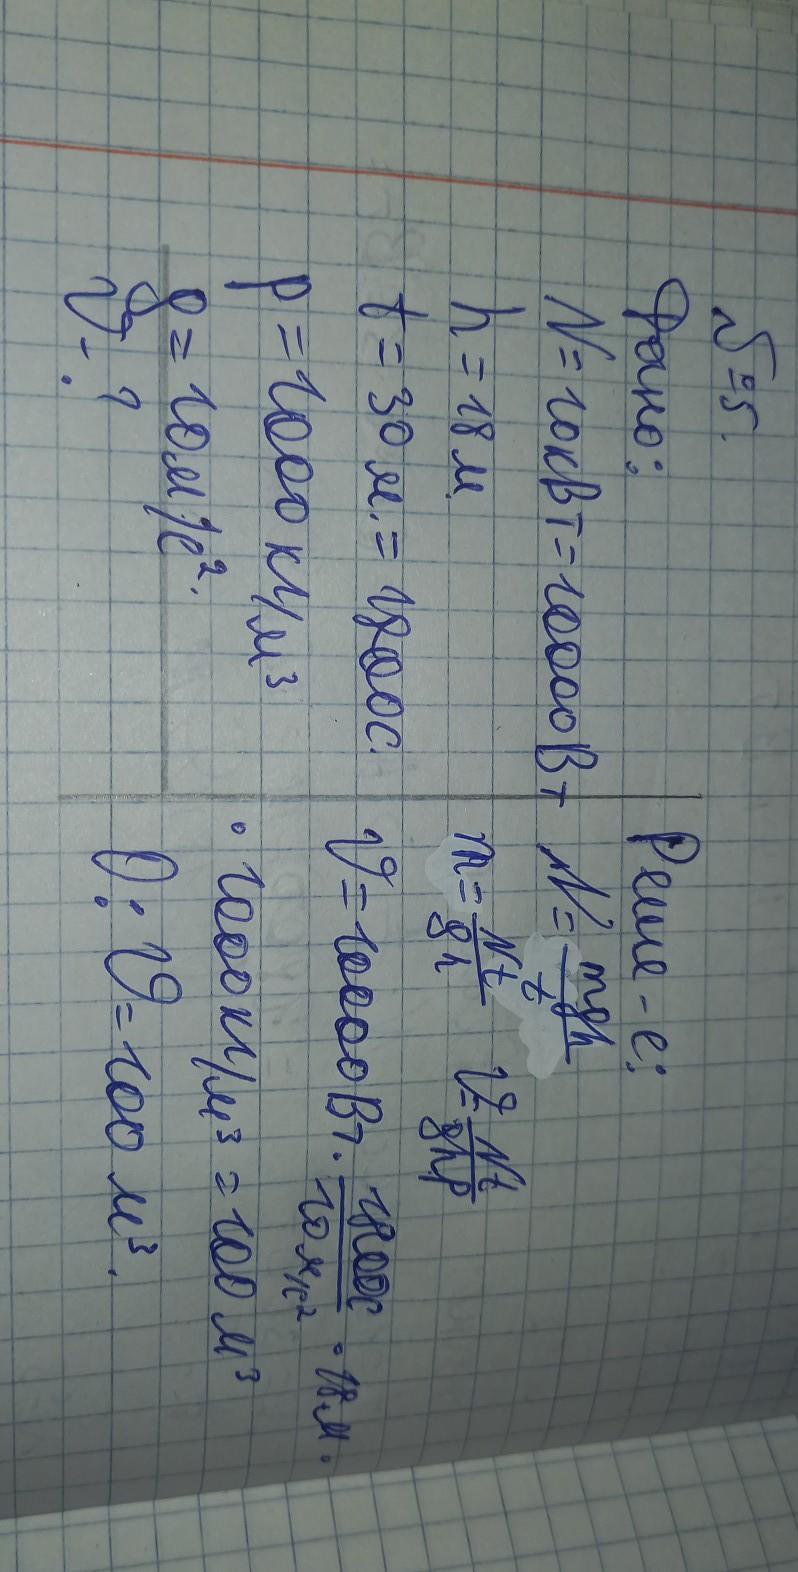 №5.
Дано:
N=10кВт=10000Вт
h=18м
t=30м.=1800с.
p=1000кг/м³
g=10м/с².
V-?
Реше-е:
N=mgh/t
m=Nt/gh V=Nt/ghp
V=10000Вт·1800с/10м/с²·18м·
·1000кг/м³=100м³
О: V=100м³.